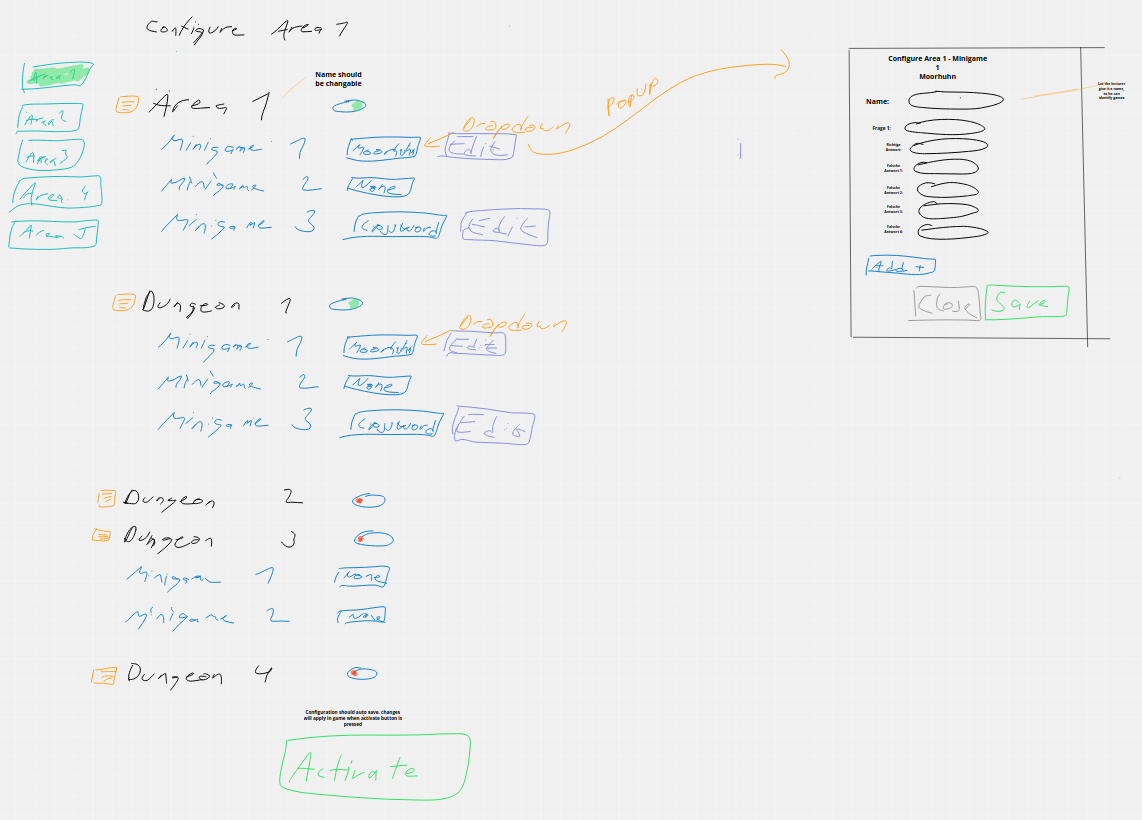 Configure Area 1
Area 1
Area 2
Area 3
Area 4
Area 5
Name should
be changable
Area 1
Dropdown
Minigame 1 Moorhuhn Edit
PopUP
Minigame 2 None
Minigame 3 Crossword Edit
Dungeon 1
Dropdown
Minigame 1 Moorhuhn Edit
Minigame 2 None
Minigame 3 Crossword Edit
Dungeon 2
Dungeon 3
Minigame 1 None
Minigame 2 None
Dungeon 4
Configuration should auto save, changes
will apply in game when activate button is
pressed
Activate
Configure Area 1 - Minigame
1
Moorhuhn
Name:
Let the lecturer
give it a name,
so he can
identify games
Frage 1:
Richtige
Antwort:
Falsche
Antwort 1:
Falsche
Antwort 2:
Falsche
Antwort 3:
Falsche
Antwort 4:
Add +
Close Save